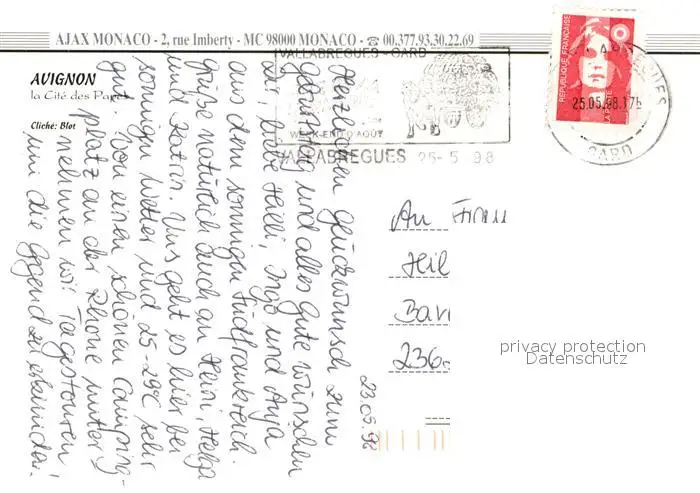 AJAX MONACO - 2, rue Imberty - MC 98000 MONACO - ☎ 00.377.93.30.22.69
AVIGNON
la Cité des Papes
Cliché: Blot
VALLABREGUES - GARD
WEEK-END D'AOUT
VALLABREGUES 25-5 98
REPUBLIQUE FRANÇAISE
LA POSTE
25.05.98.17h
GARD
Herzlichen Glückwunsch zum
Geburtstag und alles Gute wünschen
Dir, liebe Hilli, Ingo und Anja
aus dem sonnigen Südfrankreich.
Grüße natürlich auch an Heini, Helga
und Katrin. Uns geht es hier bei
sonnigem Wetter und 25-29C sehr
gut. Von einem schönen Camping-
platz an der Rhone unter-
nehmen wir Tagestouren
um die Gegend zu erkunden!
23.05.98
An Frau
Heil
Bar
236
privacy protection
Datenschutz